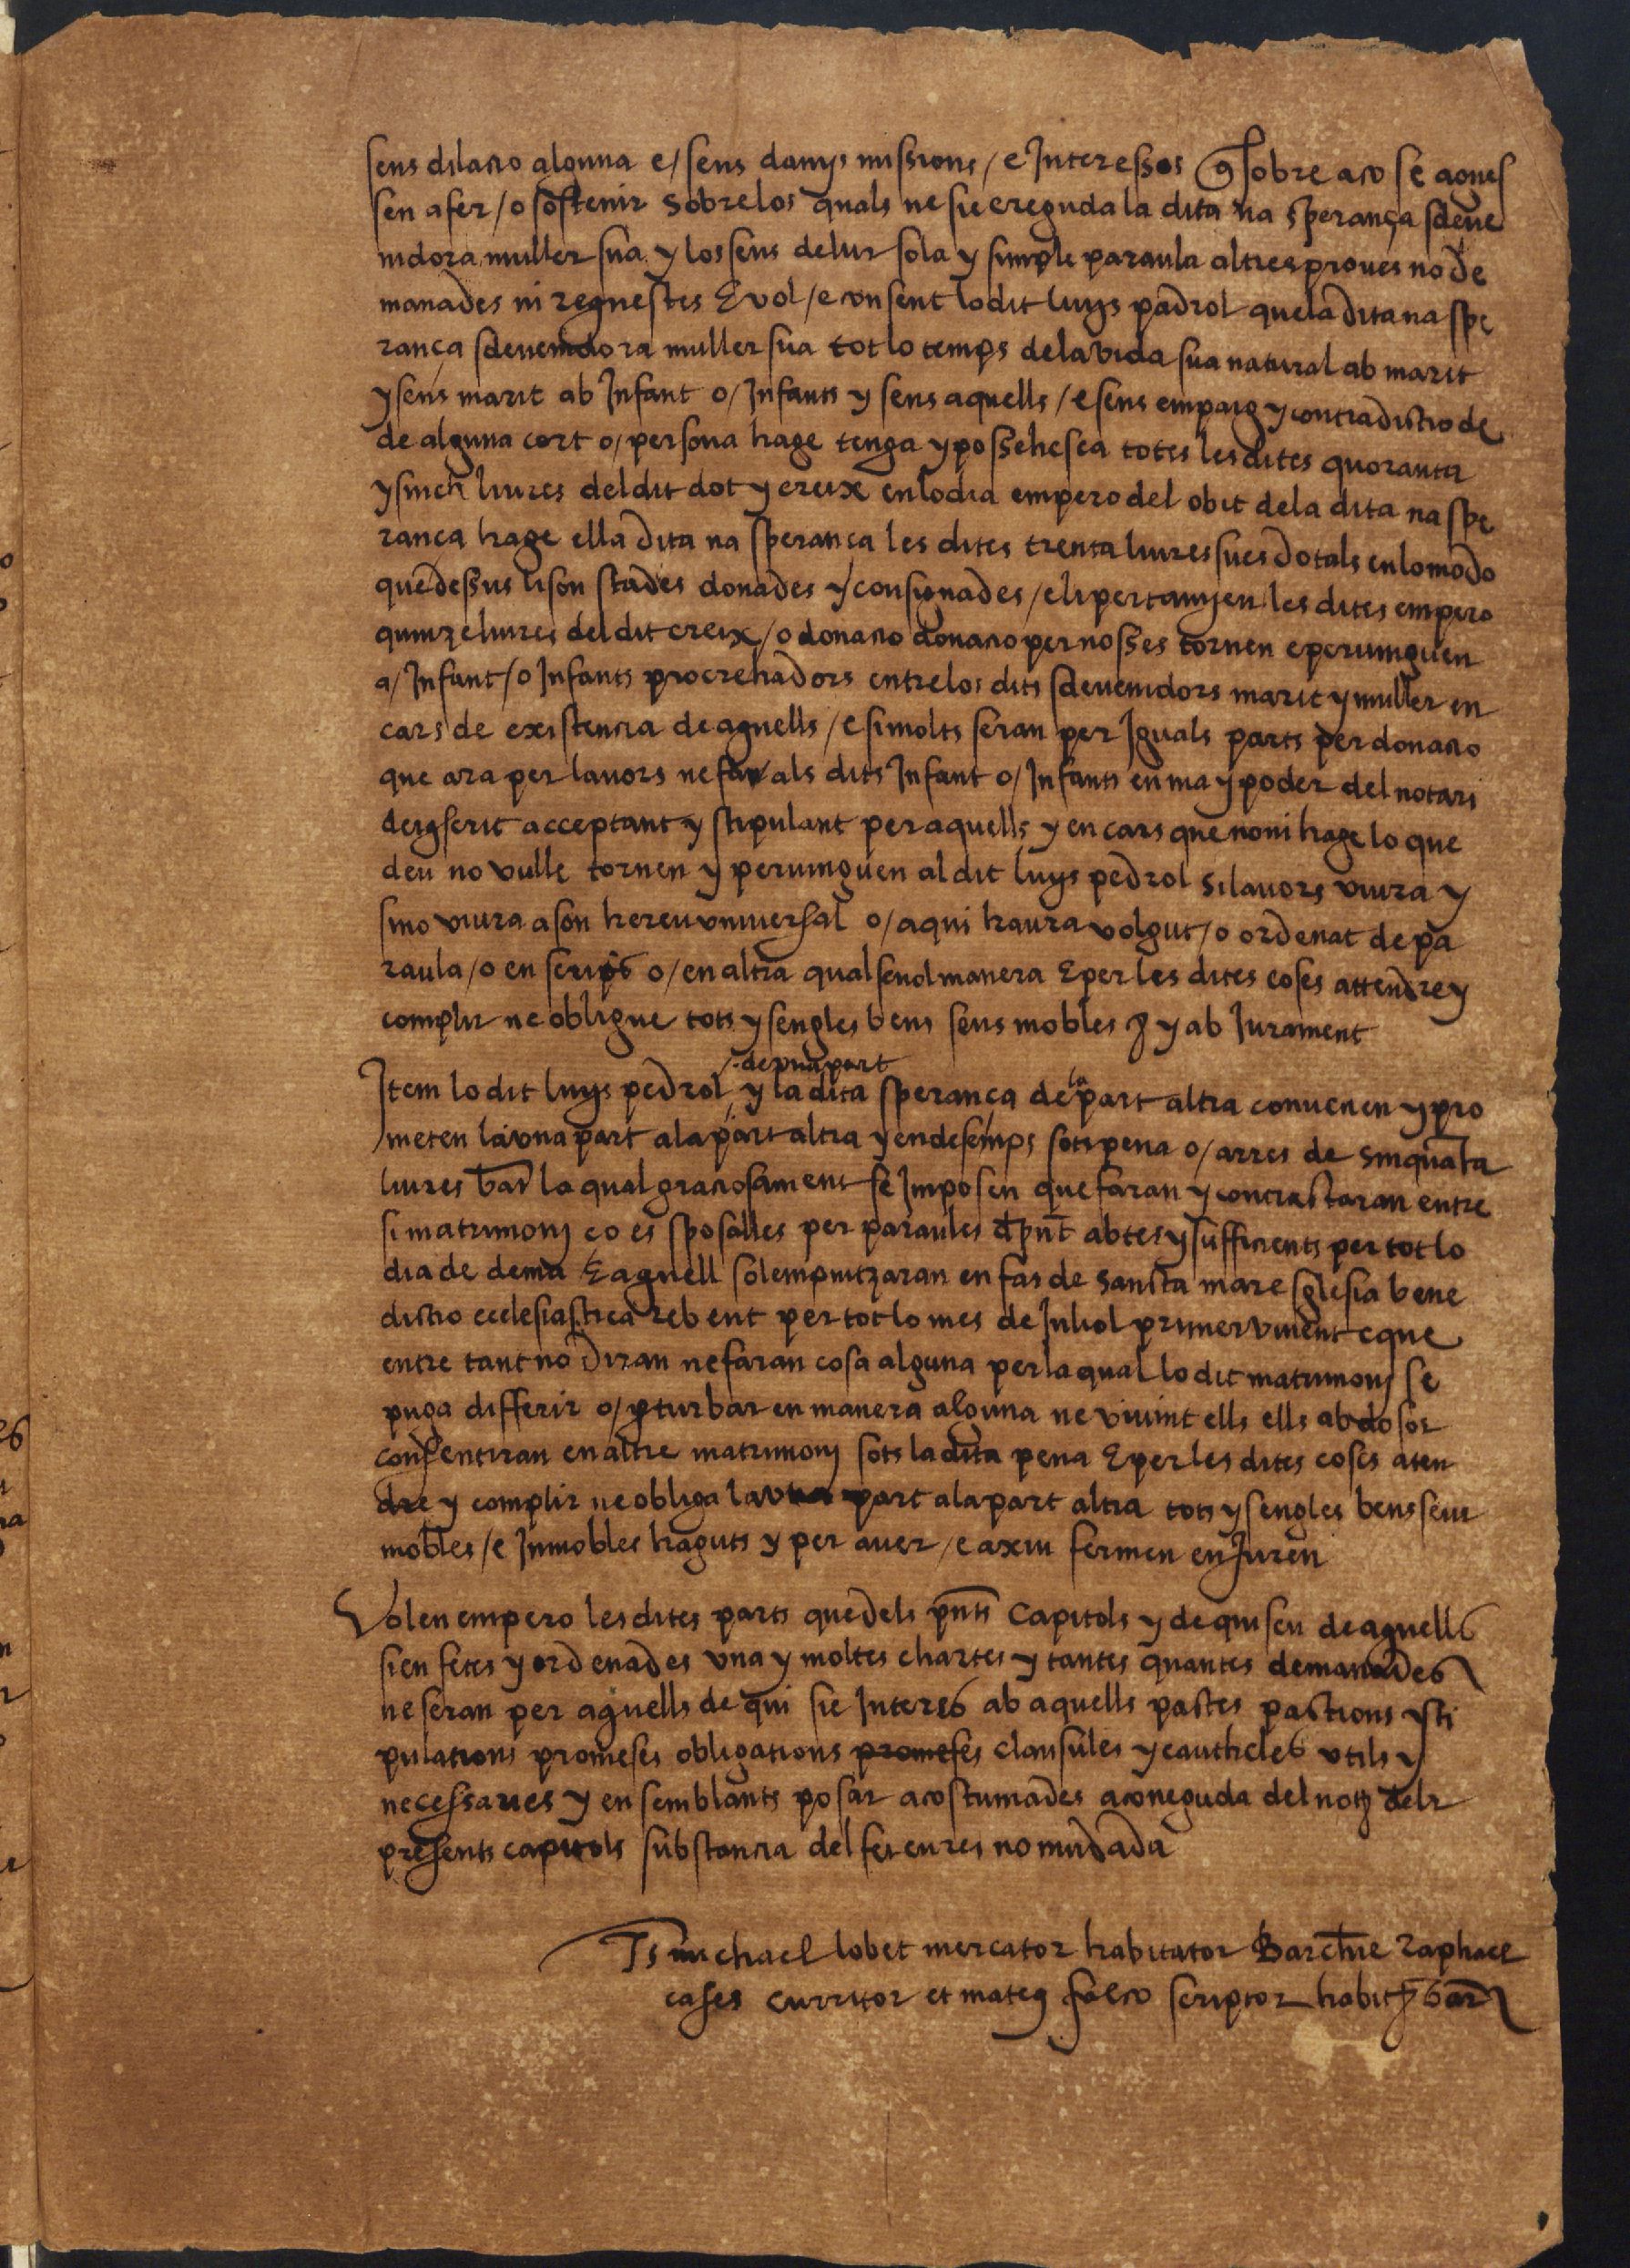 sens dilacio alguna e/ sens danys missions / e Interesses q sobre aco se agues
sen afer / o sostenir sobrelos quals ne sie creguda la dita na sperança sdeue
nidora muller sua y los seus de lur sola y simple paraula altres proues no de
manades ni requestes E vol / e consent lo dit luys padrol que la dita na spe
rança sdeuenidora muller sua tot lo temps dela vida sua natural ab marit
y sens marit ab Infant o/ Infants y sens aquells / e sens empaig y contradictio de
de alguna cort o/ persona hage tenga y possehesca totes les dites quoranta
y sinch liures del dit dot y creix en lo dia empero del obit de la dita na spe
rança hage ella dita na sperança les dites trenta liures sues dotals en lo modo
que dessus li son stades donades y consignades / e li pertanyen les dites empero
quinze liures del dit creix / o donacio donacio per nosses tornen e peruinguen
a/ Infant / o Infants procrehadors entre los dits sdeuenidors marit y muller en
cars de existencia de aquells / e si molts seran per Iguals parts per donacio
que ara per lauors ne fan als dits Infant o/ Infants en ma y poder del notari
deigscrit acceptant y stipulant per aquells y en cars que noni hage lo que
deu no vulle tornen y peruinguen al dit luys pedrol si lauors viura y
sino viura a son hereu vniuersal o/ a qui haura volgut / o ordenat de pa
raula / o en scrits o/ en altra qualseuol manera E per les dites coses attendre y
complir ne obligue tots y sengles bens seus mobles &c y ab Jurament
/ de vna part
Item lo dit luys pedrol / y la dita sperança de la part altra conuenen y pro
meten la vna part a la part altra y endesemps sots pena o/ arres de sinquata
liures bar la qual graciosament se Imposen que faran y contractaran entre
si matrimonj ço es sposalles per paraules d pnt abtes y sufficients per tot lo
dia de dema E aquell solempnitzaran en fas de sancta mare sglesia bene
dictio ecclesiastica rebent per tot lo mes de Juliol primer vinent e que
entre tant no diran ne faran cosa alguna per la qual lo dit matrimonj se
puga differir o/ pturbar en manera alguna ne viuint ells ells abdosos
consentiran en altre matrimonj sots la dita pena E per les dites coses aten
dre y complir ne obliga la vna part a la part altra tots y sengles bens seus
mobles / e Inmobles haguts y per auer / e axiu fermen en Juren
Volen empero les dites parts que dels pnts Capitols y de quiscu de aquells
sien fetes y ordenades vna y moltes chartes y tantes quantes demanades
ne seran per aquells de qui sie Interes ab aquells pactes pactions y sti
pulations promeses obligations promeses clausules y cautheles vtils y
necessaries y en semblants posar acostumades a coneguda del not dels
presents capitols substancia del fet en res no mudada
Ts michael lobet mercator habitator Barchne raphael
cases curritor et mateus falco scriptor habit bar